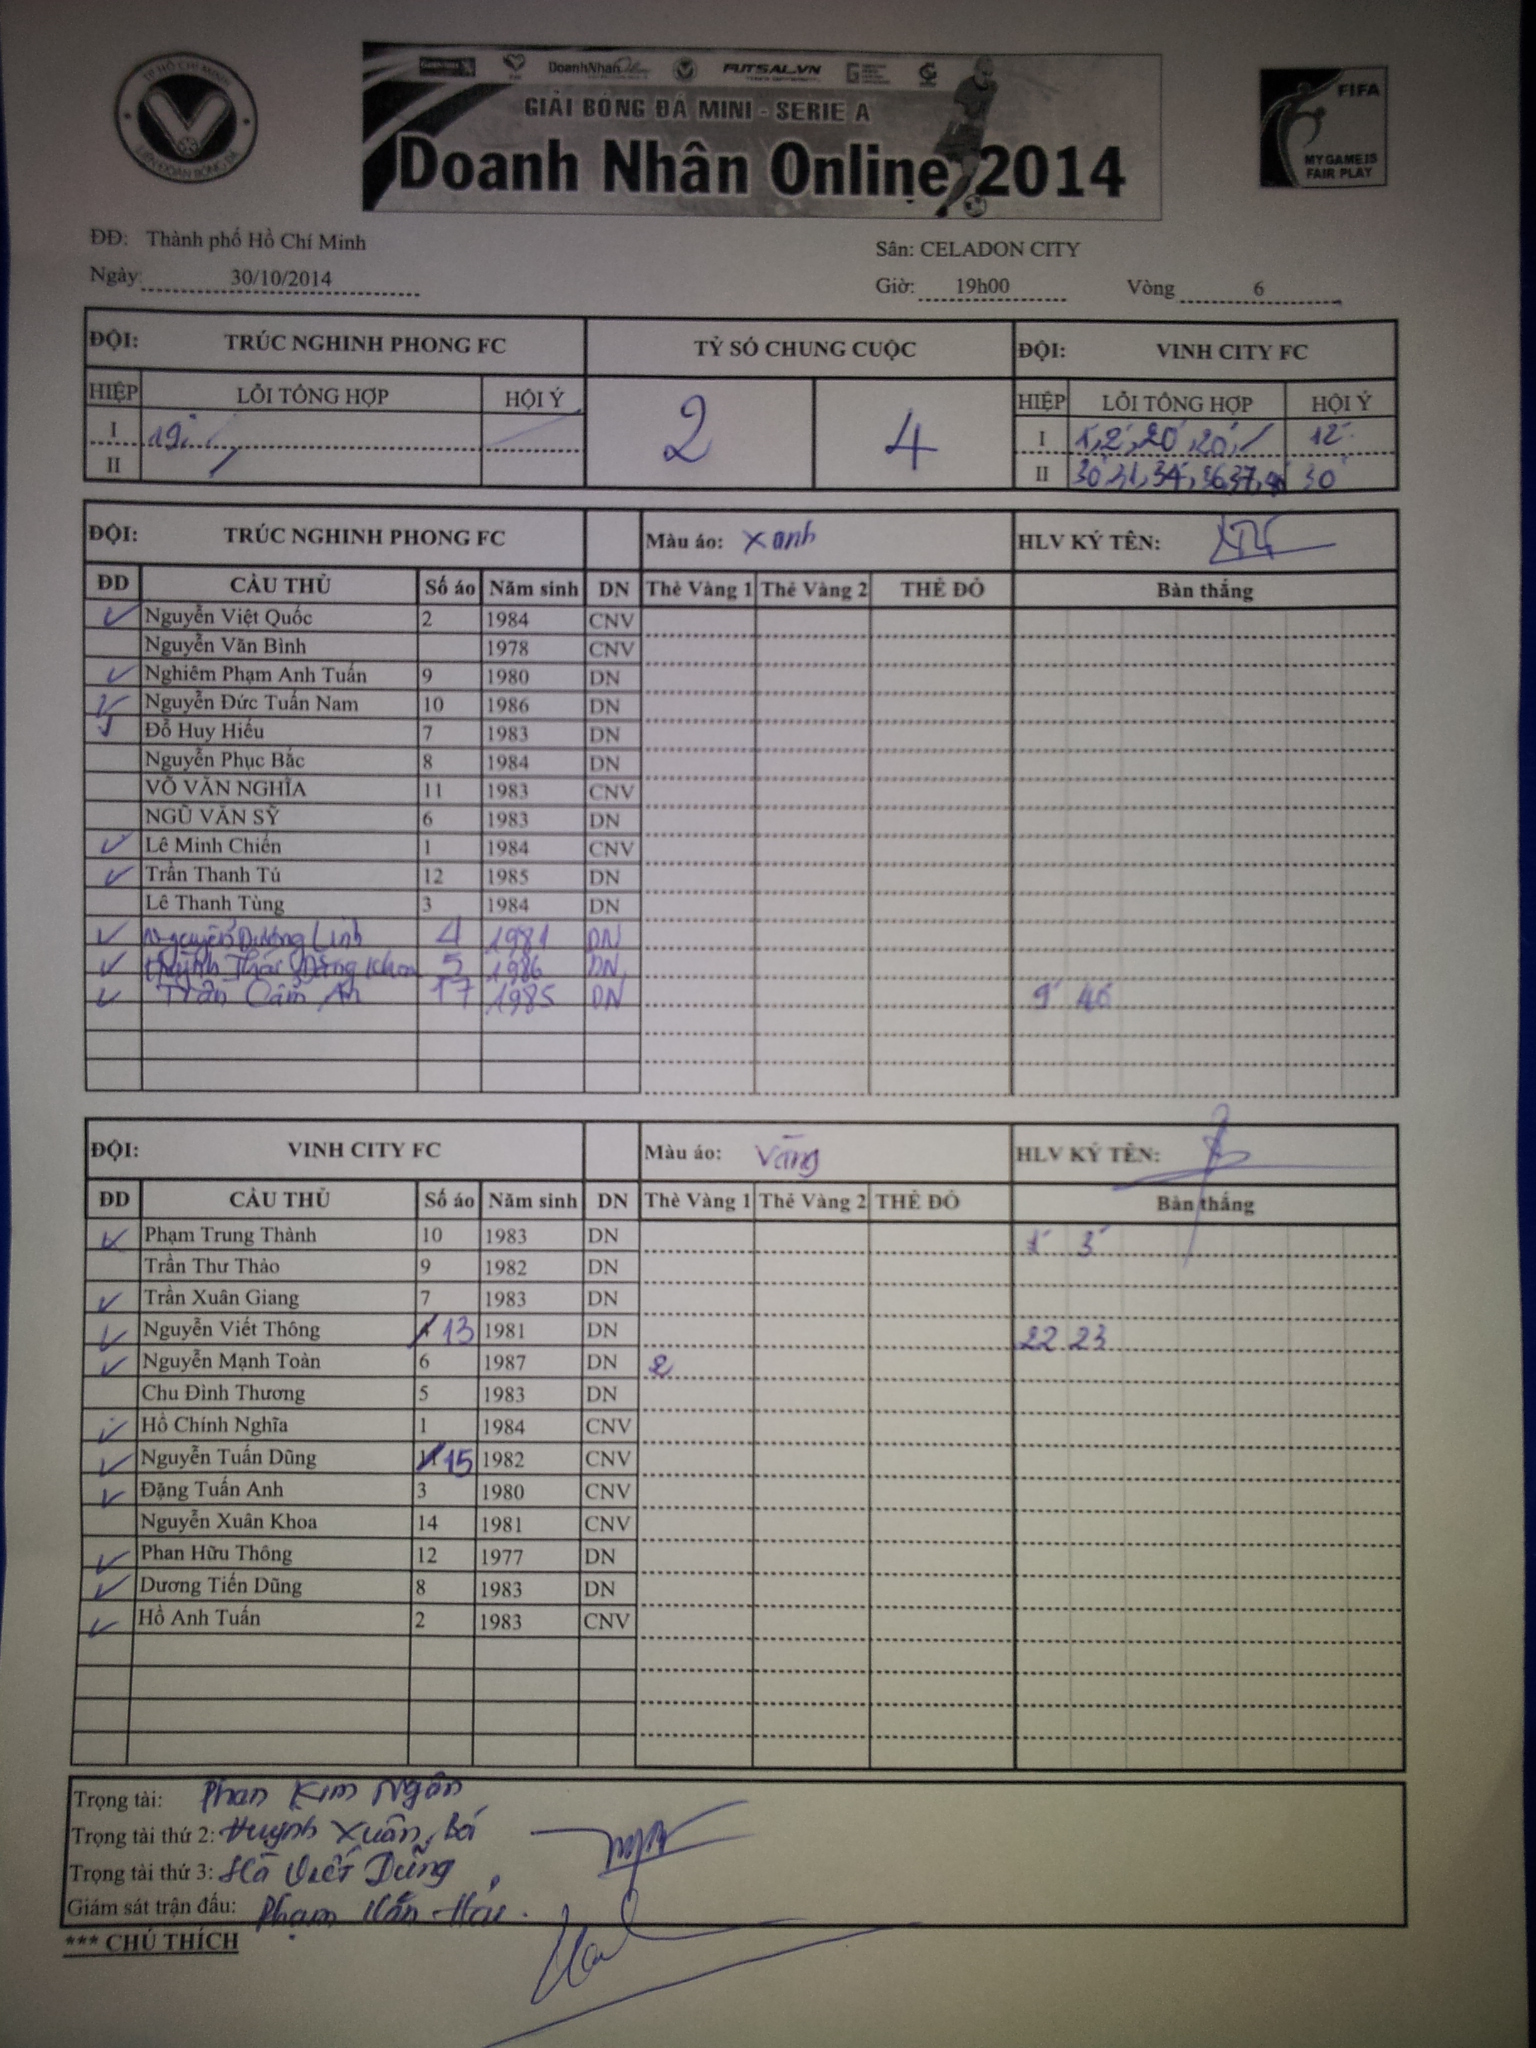 TP HỒ CHÍ MINH
LIÊN ĐOÀN BÓNG ĐÁ
DoanhNhanOnline FUTSAL.VN
GIẢI BÓNG ĐÁ MINI - SERIE A
Doanh Nhân Online 2014
FIFA
MY GAME IS
FAIR PLAY
ĐĐ: Thành phố Hồ Chí Minh
Sân: CELADON CITY
Ngày 30/10/2014 Giờ: 19h00 Vòng 6
ĐỘI: TRÚC NGHINH PHONG FC TỶ SỐ CHUNG CUỘC ĐỘI: VINH CITY FC
HIỆP LỖI TỔNG HỢP HỘI Ý 2 4 HIỆP LỖI TỔNG HỢP HỘI Ý
I 19' I 1', 2', 20', 20', 12'
II II 30', 31, 34', 36, 37, 30'
ĐỘI: TRÚC NGHINH PHONG FC Màu áo: Xanh HLV KÝ TÊN:
ĐD CẦU THỦ Số áo Năm sinh DN Thẻ Vàng 1 Thẻ Vàng 2 THẺ ĐỎ Bàn thắng
Nguyễn Việt Quốc 2 1984 CNV
Nguyễn Văn Bình 1978 CNV
Nghiêm Phạm Anh Tuấn 9 1980 DN
Nguyễn Đức Tuấn Nam 10 1986 DN
Đỗ Huy Hiếu 7 1983 DN
Nguyễn Phục Bắc 8 1984 DN
VÕ VĂN NGHĨA 11 1983 CNV
NGŨ VĂN SỸ 6 1983 DN
Lê Minh Chiến 1 1984 CNV
Trần Thanh Tú 12 1985 DN
Lê Thanh Tùng 3 1984 DN
Nguyễn Dương Linh 4 1981 DN
Huỳnh Thái Đăng Khoa 5 1986 DN
Trần Cẩm An 17 1985 DN 9' 40'
ĐỘI: VINH CITY FC Màu áo: Vàng HLV KÝ TÊN:
ĐD CẦU THỦ Số áo Năm sinh DN Thẻ Vàng 1 Thẻ Vàng 2 THẺ ĐỎ Bàn thắng
Phạm Trung Thành 10 1983 DN 1' 3'
Trần Thư Thảo 9 1982 DN
Trần Xuân Giang 7 1983 DN
Nguyễn Viết Thông 13 1981 DN 22 23
Nguyễn Mạnh Toàn 6 1987 DN 2
Chu Đình Thương 5 1983 DN
Hồ Chính Nghĩa 1 1984 CNV
Nguyễn Tuấn Dũng 15 1982 CNV
Đặng Tuấn Anh 3 1980 CNV
Nguyễn Xuân Khoa 14 1981 CNV
Phan Hữu Thông 12 1977 DN
Dương Tiến Dũng 8 1983 DN
Hồ Anh Tuấn 2 1983 CNV
Trọng tài: Phan Kim Ngân
Trọng tài thứ 2: Huỳnh Xuân
Trọng tài thứ 3: Hà Viết Dũng
Giám sát trận đấu: Phạm Văn
*** CHÚ THÍCH